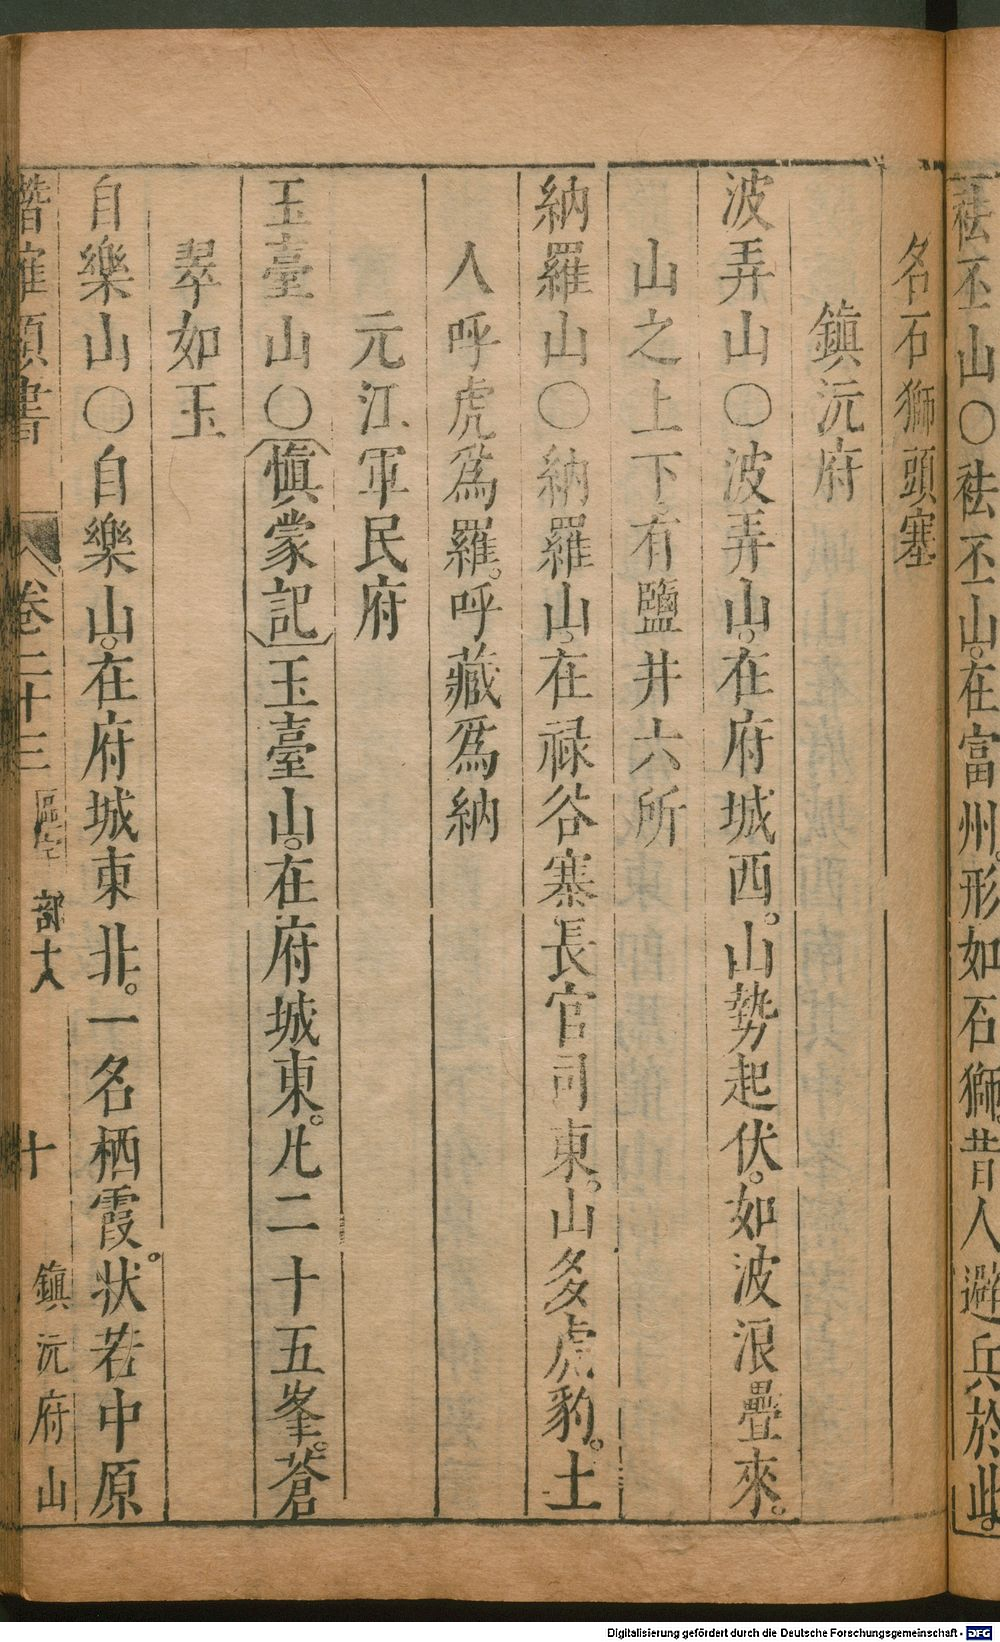 袪丕山○袪丕山。在富州。形如石獅。昔人避兵於此。
名石獅頭塞
鎮沅府
波弄山○波弄山。在府城西。山勢起伏。如波浪疊來。
山之上下。有鹽井六所
納羅山○納羅山。在禄谷寨長官司東。山多虎豹。土
人呼虎爲羅。呼藏爲納
元江軍民府
玉臺山○（愼蒙記）玉臺山。在府城東。凡二十五峯。蒼
翠如玉
自樂山○自樂山。在府城東北。一名栖霞。狀若中原
潛確類書 卷二十三 區宇部十八 十 鎮沅府山
Digitalisierung gefördert durch die Deutsche Forschungsgemeinschaft - DFG